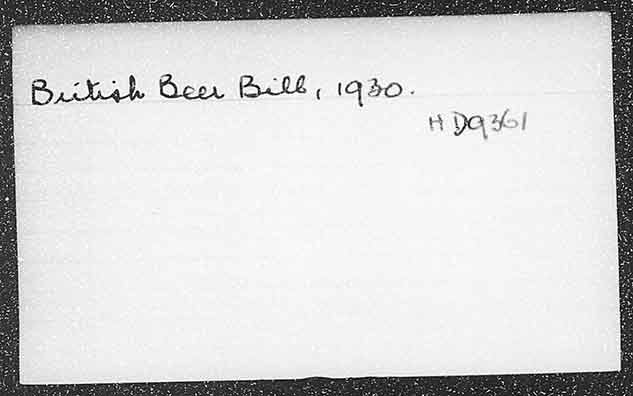 British Beer Bill, 1930.
HD9361